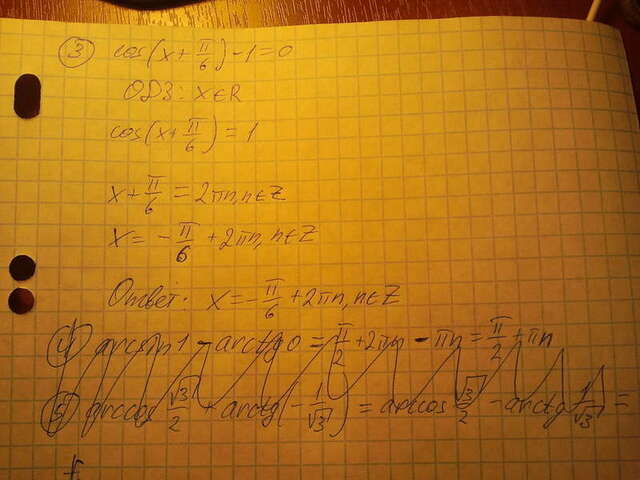 ③ cos(x + π/6) - 1 = 0
ОДЗ: x ∈ R
cos(x + π/6) = 1
x + π/6 = 2πn, n ∈ Z
x = - π/6 + 2πn, n ∈ Z
Ответ: x = - π/6 + 2πn, n ∈ Z
④ arcsin 1 - arctg 0 = π/2 + 2πn - πn = π/2 + πn
⑤ arccos √3/2 + arctg(- 1/√3) = arccos √3/2 - arctg 1/√3 =